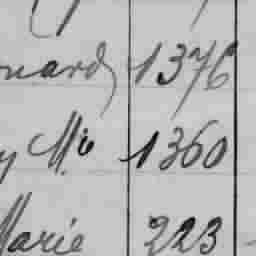 nard 1376
y Mie 1360
Marie 223